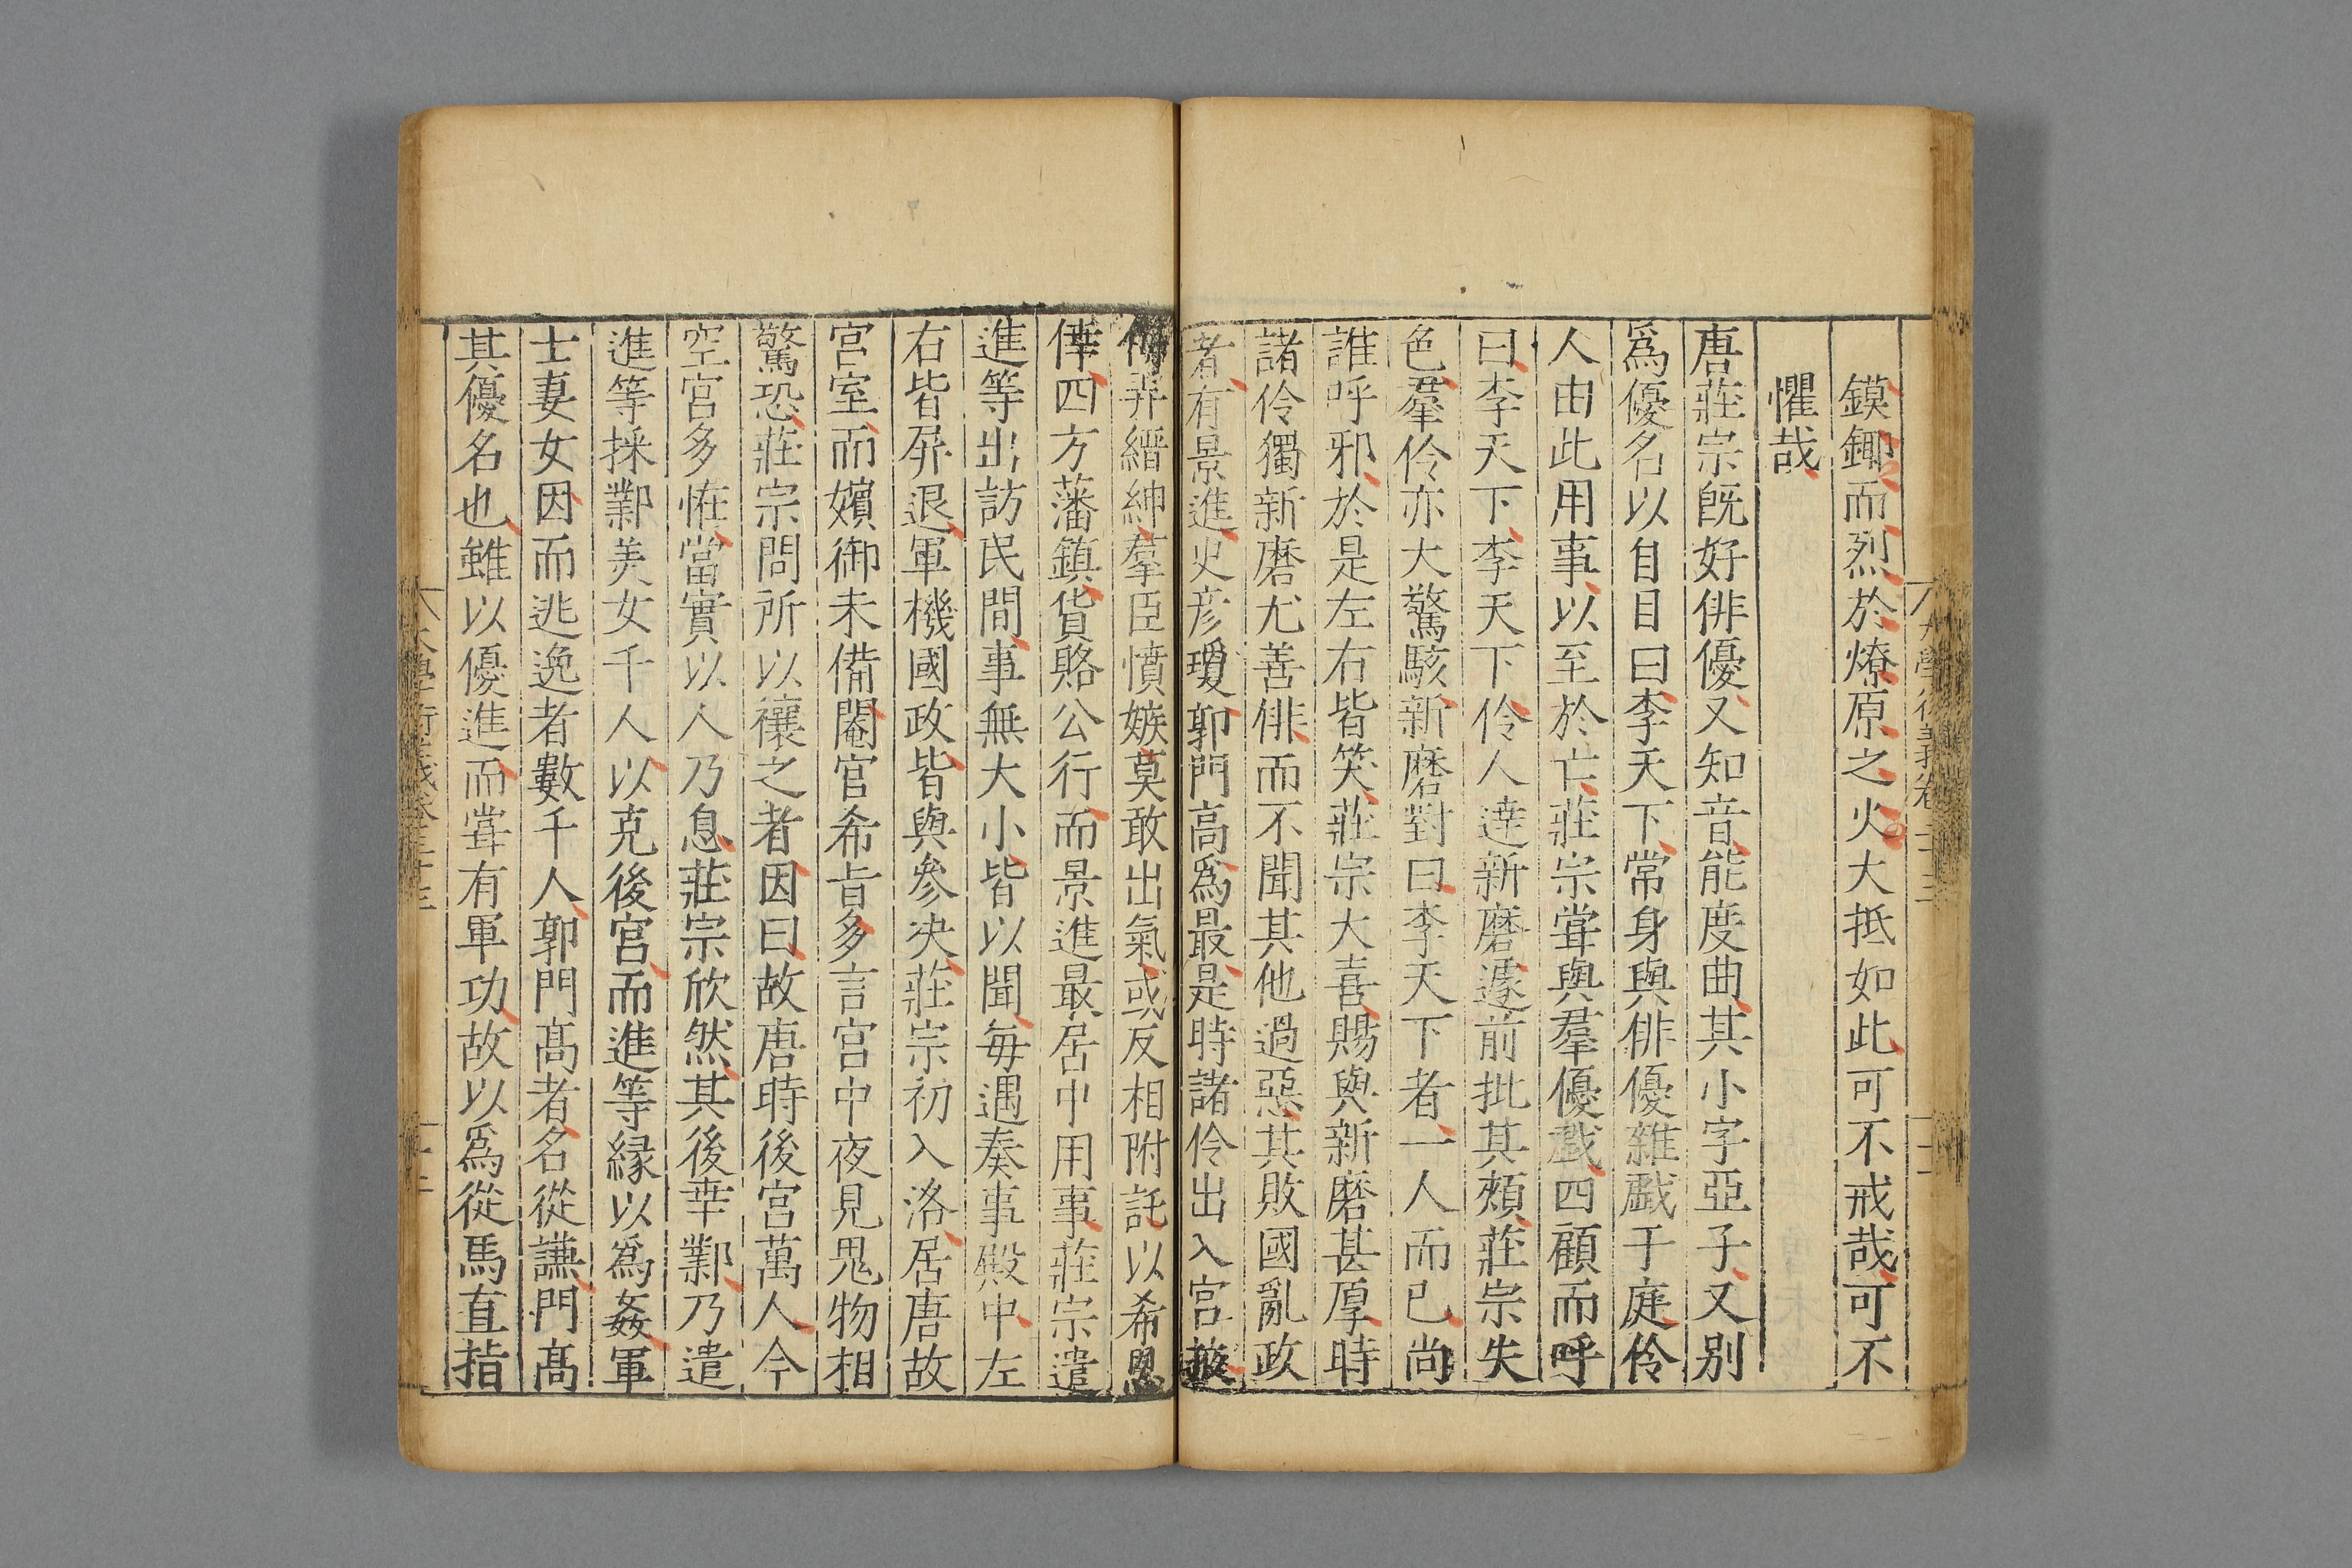 鏌鎁而烈於燎原之火大抵如此可不戒哉可不
懼哉
唐莊宗旣好俳優又知音能度曲其小字亞子又别
爲優名以自目曰李天下常身與俳優雜戲于庭伶
人由此用事以至於亡莊宗甞與羣優戲四顧而呼
曰李天下李天下伶人達新磨遽前批其頰莊宗失
色羣伶亦大驚駭新磨對曰李天下者一人而已尚
誰呼邪於是左右皆笑莊宗大喜賜與新磨甚厚時
諸伶獨新磨尤善俳而不聞其他過惡其敗國亂政
者有景進史彦瓊郭門高爲最是時諸伶出入宫掖
侮弄縉紳羣臣憤嫉莫敢出氣或反相附託以希恩
倖四方藩鎮貨賂公行而景進最居中用事莊宗遣
進等出訪民間事無大小皆以聞毎遇奏事殿中左
右皆屏退軍機國政皆與參决莊宗初入洛居唐故
宫室而嬪御未備閹官希㫖多言宫中夜見鬼物相
驚恐莊宗問所以禳之者因曰故唐時後宫萬人今
空宫多恠當實以人乃息莊宗欣然其後幸鄴乃遣
進等採鄴美女千人以充後宫而進等縁以爲姦軍
士妻女因而逃逸者數千人郭門髙者名從謙門髙
其優名也雖以優進而甞有軍功故以爲從馬直指
大學衍義卷二十三